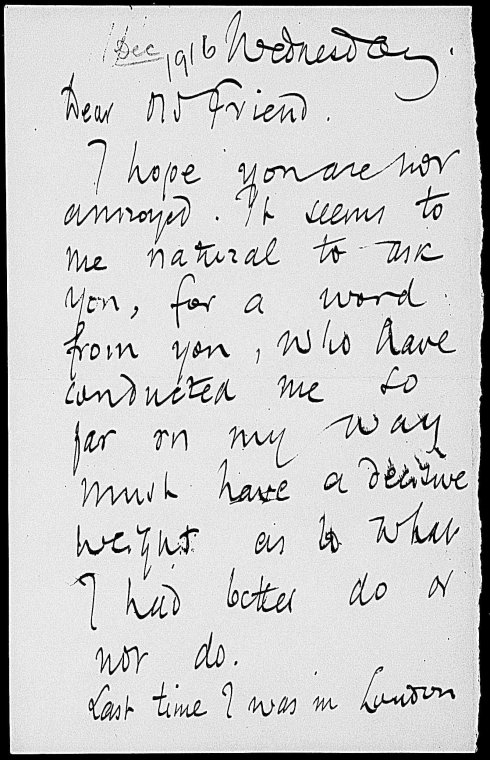 Dec 1916 Wednesday.
Dear Old Friend.
I hope you are not
annoyed. It seems to
me natural to ask
you, for a word
from you, who have
conducted me so
far on my way
must have a decisive
weight as to what
I had better do or
not do.
Last time I was in London